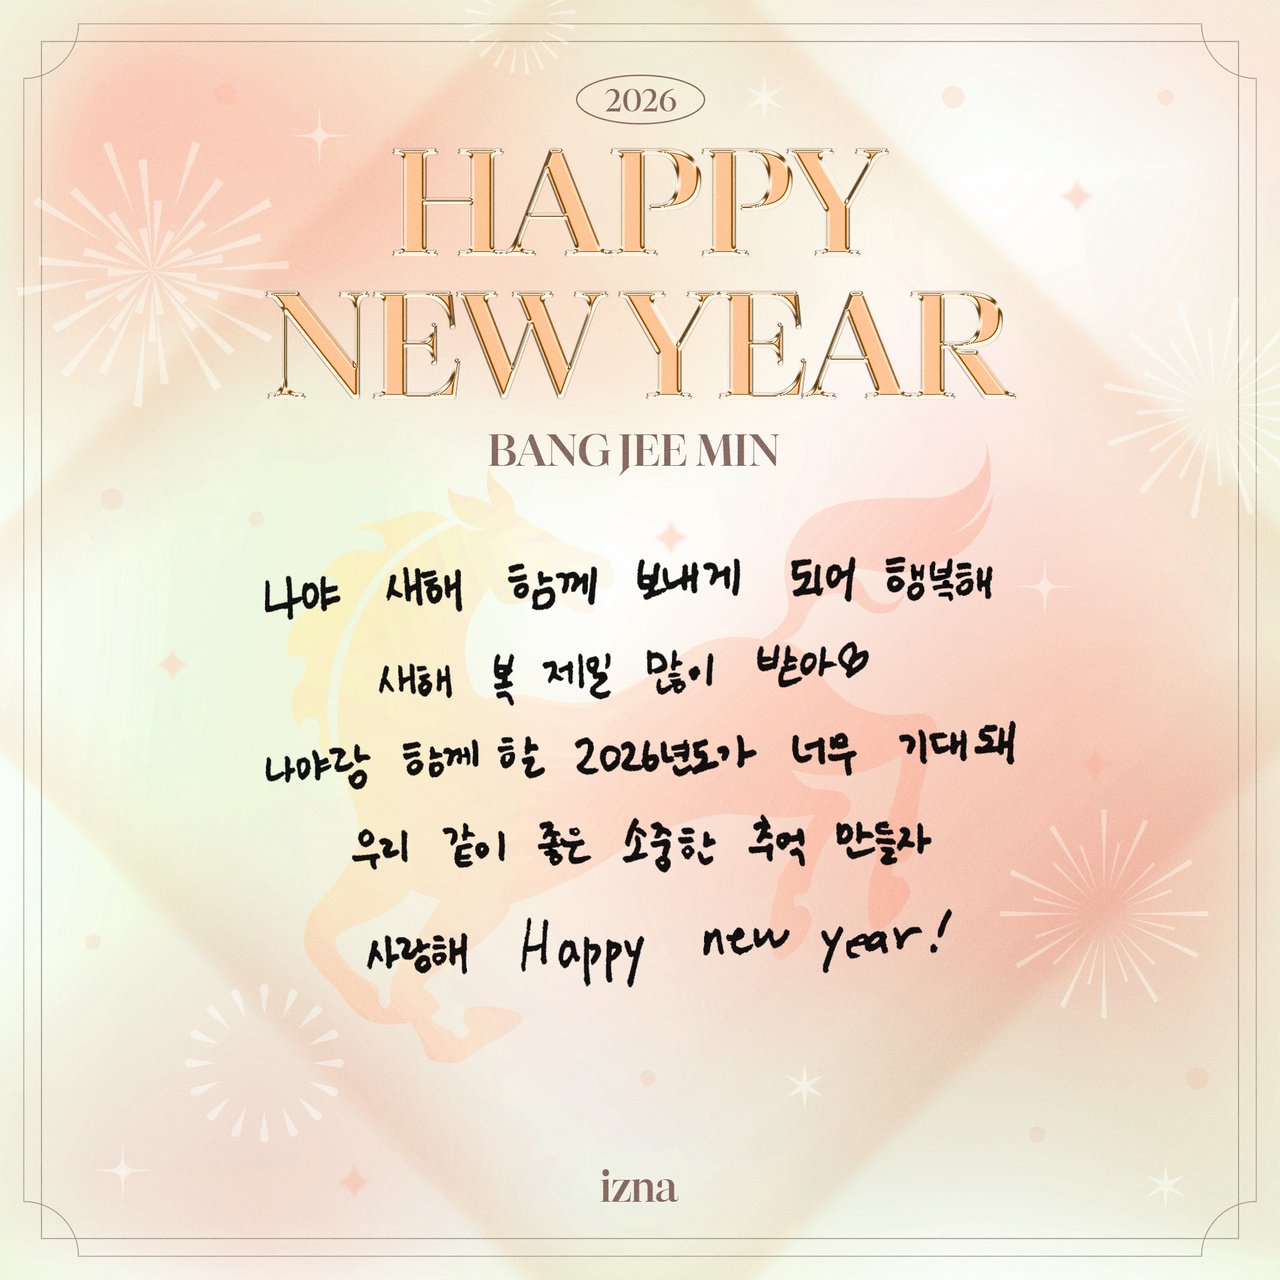 2026
HAPPY
NEW YEAR
BANG JEE MIN
나야 새해 함께 보내게 되어 행복해
새해 복 제일 많이 받아♡
나야랑 함께 할 2026년도가 너무 기대돼
우리 같이 좋은 소중한 추억 만들자
사랑해 Happy new year!
izna